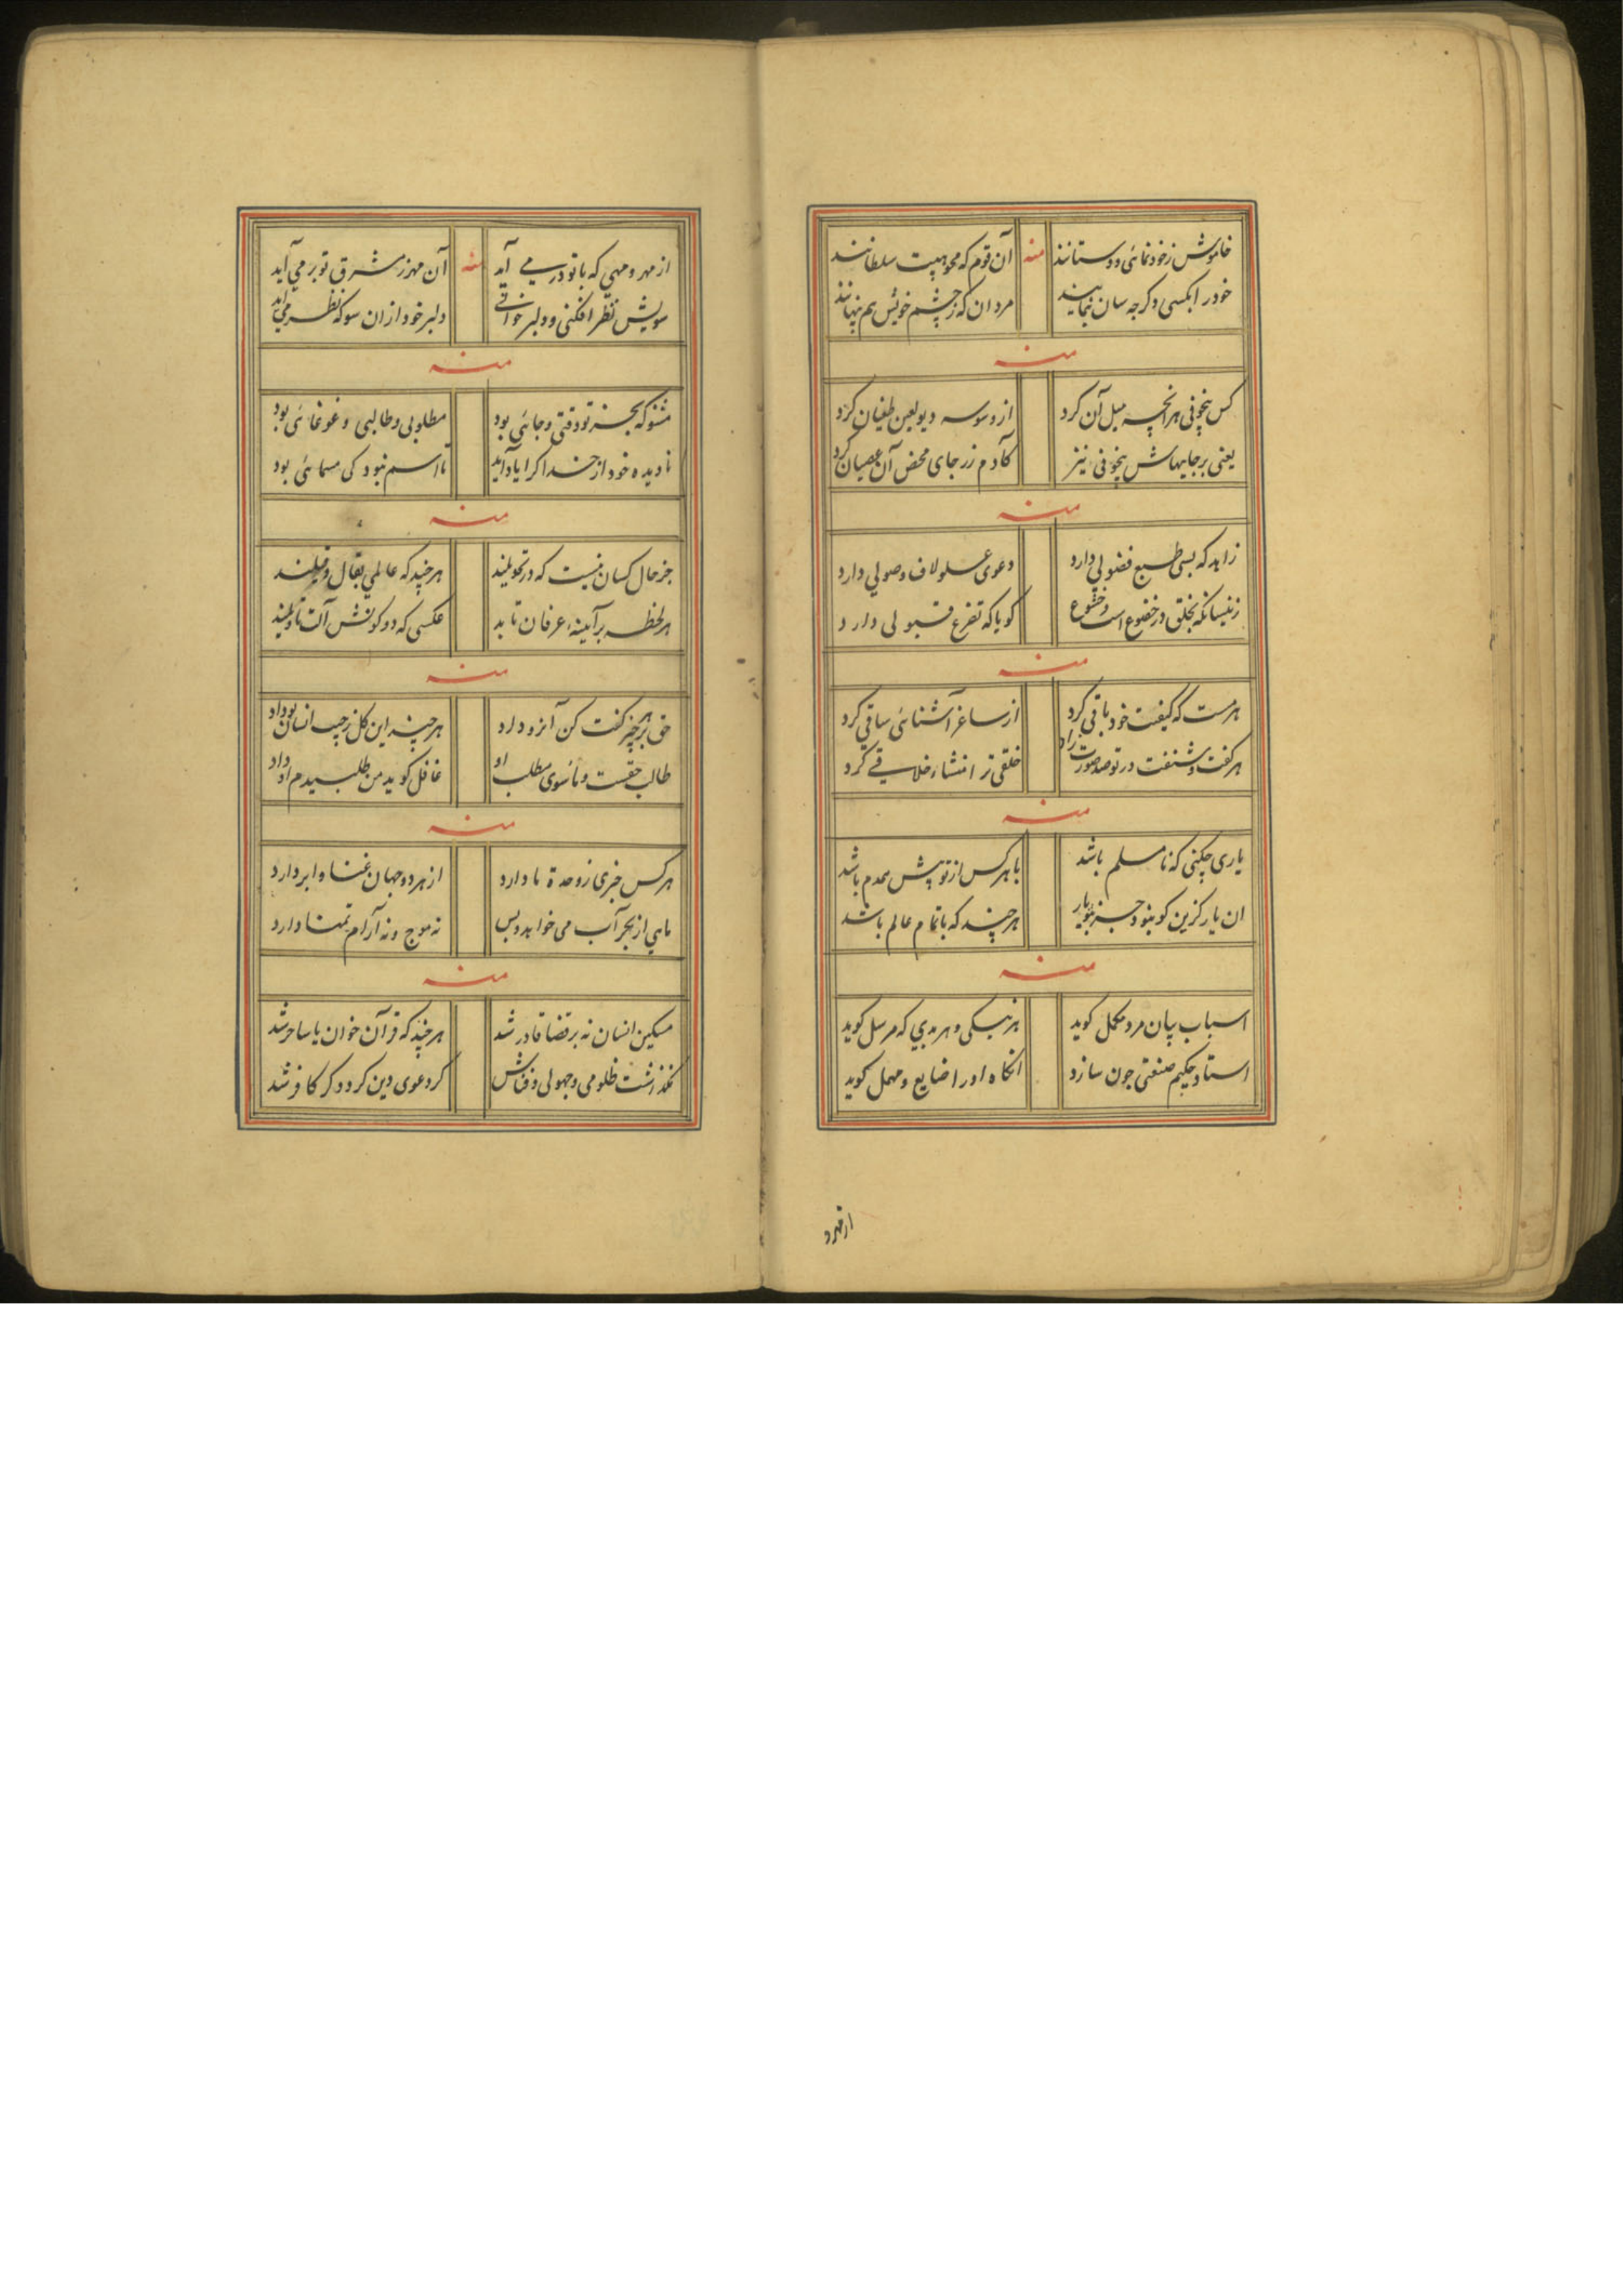 خاموش زخودنمائی و دوستانند منه آن قوم که محو هیبت سلطانند
خودرا بکسی دکر چه سان بنمایند مردان که زچشم خویش هم پنهانند
منه
کس بیخوفی هرانچه میل آن کرد از وسوسه دیو لعین طغیان کرد
یعنی برجایهاش بیخوفی نیز کآدم زرجای محض آن عصیان کرد
منه
زاهد که بسی طبع فضولی دارد دعوی سلو لاف وصولی دارد
زینسانکه بخلق در خضوع است و خشوع کویا که تفرع قبولی دارد
منه
هر مست که کیفیت خود باقی کرد از ساغر آشنائی ساقی کرد
هر کفت و شنفت در تو صد صورت زاد خلقی ز انتشار خلاقی کرد
منه
یاری چکنی که نا مسلم باشد با هرکس از تو پیش همدم باشد
ان یار کزین کو نبود جز بتو یار هرچند که با تمام عالم باشد
منه
اسباب بیان مرد مکمل کوید هر نیکی و هر بدی که مرسل کوید
استاد حکیم صنعتی چون سازد انکاه اورا ضایع و مهمل کوید
از هر د
از مهر و مهی که با تو در می آید منه آن مهر زمشرق تو بر می آید
سویش نظر افکنی و دلبر خوانی دلبر خود ازان سو که نظر می آید
منه
مشنو که بجز تو وقتی و جائی بود مطلوبی و طالبی و غوغائی بود
نادیده خود از خدا کرا یاد آید تا اسم نبود کی مسمائی بود
منه
جز حال کسان نیست که در تحویلند هرچند که عالمی بقال و قیلند
هر لحظه بر آیینهٔ عرفان تابد عکسی که دو کونش آلت تأویلند
منه
حق بر هر چیز کفت کن آنرو داد هرچند این کل زجیب انسان بو داد
طالب حقست و ماسوی مطلب او غافل کوید من طلبیدم او داد
منه
هرکس خبری زوحدة ما دارد از هر دو جهان غنا و ابر دارد
ماهی از بحر آب می خواهد و بس نه موج و نه آرام تمنا دارد
منه
مسکین انسان نه بر قضا قادر شد هرچند که قرآن خوان یا ساحر شد
نکذاشت ظلومی و جهولی و فناش کر دعوی دین کرد و کر کافر شد